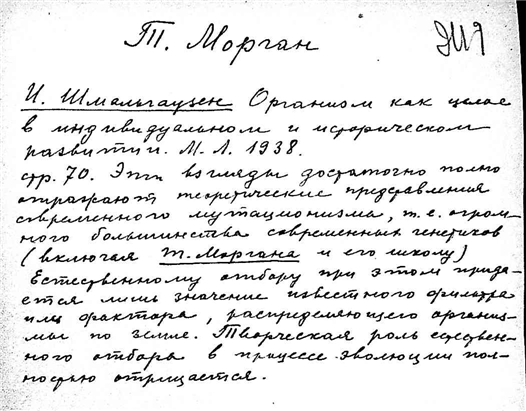 Т. Морган
И. Шмальгаузен Организм как целое
в индивидуальном и историческом
развитии. М. Л. 1938.
стр. 70. Эти взгляды достаточно полно
отражают теоретические представления
современного мутационизма, т. е. огром-
ного большинства современных генетиков
(включая Т. Моргана и его школу)
Естественному отбору при этом прида-
ется лишь значение известного фильтра
или фактора, распределяющего организ-
мы по земле. Творческая роль естествен-
ного отбора в процессе эволюции пол-
ностью отрицается.